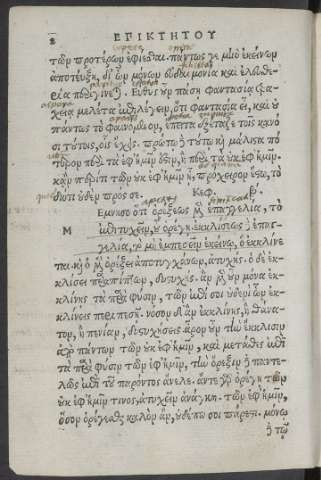 8 ΕΠΙΚΤΗΤΟΥ
τῶν προτέρων ἐφίεσαι. πάντως γε μὴν ἐκείνων
ἀποτεύξῃ, δι' ὧν μόνων εὐδαιμονία καὶ ἐλευθε-
ρία περιγίνεται. Εὐθὺς οὖν πάσῃ φαντασίᾳ τρα-
χείᾳ μελέτα ἐπιλέγειν, ὅτι φαντασία εἶ, καὶ οὐ
πάντως τὸ φαινόμενον, ἔπειτα ἐξέταζε τοῖς κανό
σι τούτοις, οἷς ἔχεις. πρώτῳ δὲ τούτῳ καὶ μάλιστα πό
τερον περὶ τὰ ἐφ' ἡμῖν ἐστιν, ἢ περὶ τὰ οὐκ ἐφ' ἡμῖν.
κἂν περί τι τῶν οὐκ ἐφ' ἡμῖν ᾖ, πρόχειρον ἔστω, τὸ
διότι οὐδὲν πρός σε. Κεφ. β.
Μ Εμνησο ὅτι ὀρέξεως μὲν ἐπαγγελία, τὸ
ἐπιτυχεῖν, οὗ ὀρέγῃ. ἐκκλίσεως δὲ ἐπαγ-
γελία, τὸ μὴ ἐμπεσεῖν ἐκείνῳ, ὃ ἐκκλίνε
ται. καὶ ὁ μὲν ὀρέξει ἀποτυγχάνων, ἀτυχής. ὁ δὲ ἐκ-
κλίσει περιπίπτων, δυστυχής. ἂν μὲν οὖν μόνα ἐκ-
κλίνῃς τὰ παρὰ φύσιν, τῶν ἐπὶ σοὶ οὐδενὶ ὧν ἐκ-
κλίνεις περιπεσῇ. νόσον δὲ ἂν ἐκκλίνῃς, ἢ θάνα-
τον, ἢ πενίαν, δυστυχήσεις. ἆρον οὖν τὴν ἔκκλισιν
ἀπὸ πάντων τῶν οὐκ ἐφ' ἡμῖν, καὶ μετάθες ἐπὶ
τὰ παρὰ φύσιν τῶν ἐφ' ἡμῖν. τὴν ὄρεξιν δὲ παντε-
λῶς ἐπὶ τοῦ παρόντος ἄνελε. ἄν τε γὰρ ὀρέγῃ τῶν
οὐκ ἐφ' ἡμῖν τινος, ἀτυχεῖν ἀνάγκη. τῶν ἐφ' ἡμῖν,
ὅσων ὀρέγεσθαι καλὸν ἄν, οὐδέπω σοι πάρεστι. μόνῳ
δὲ τῷ